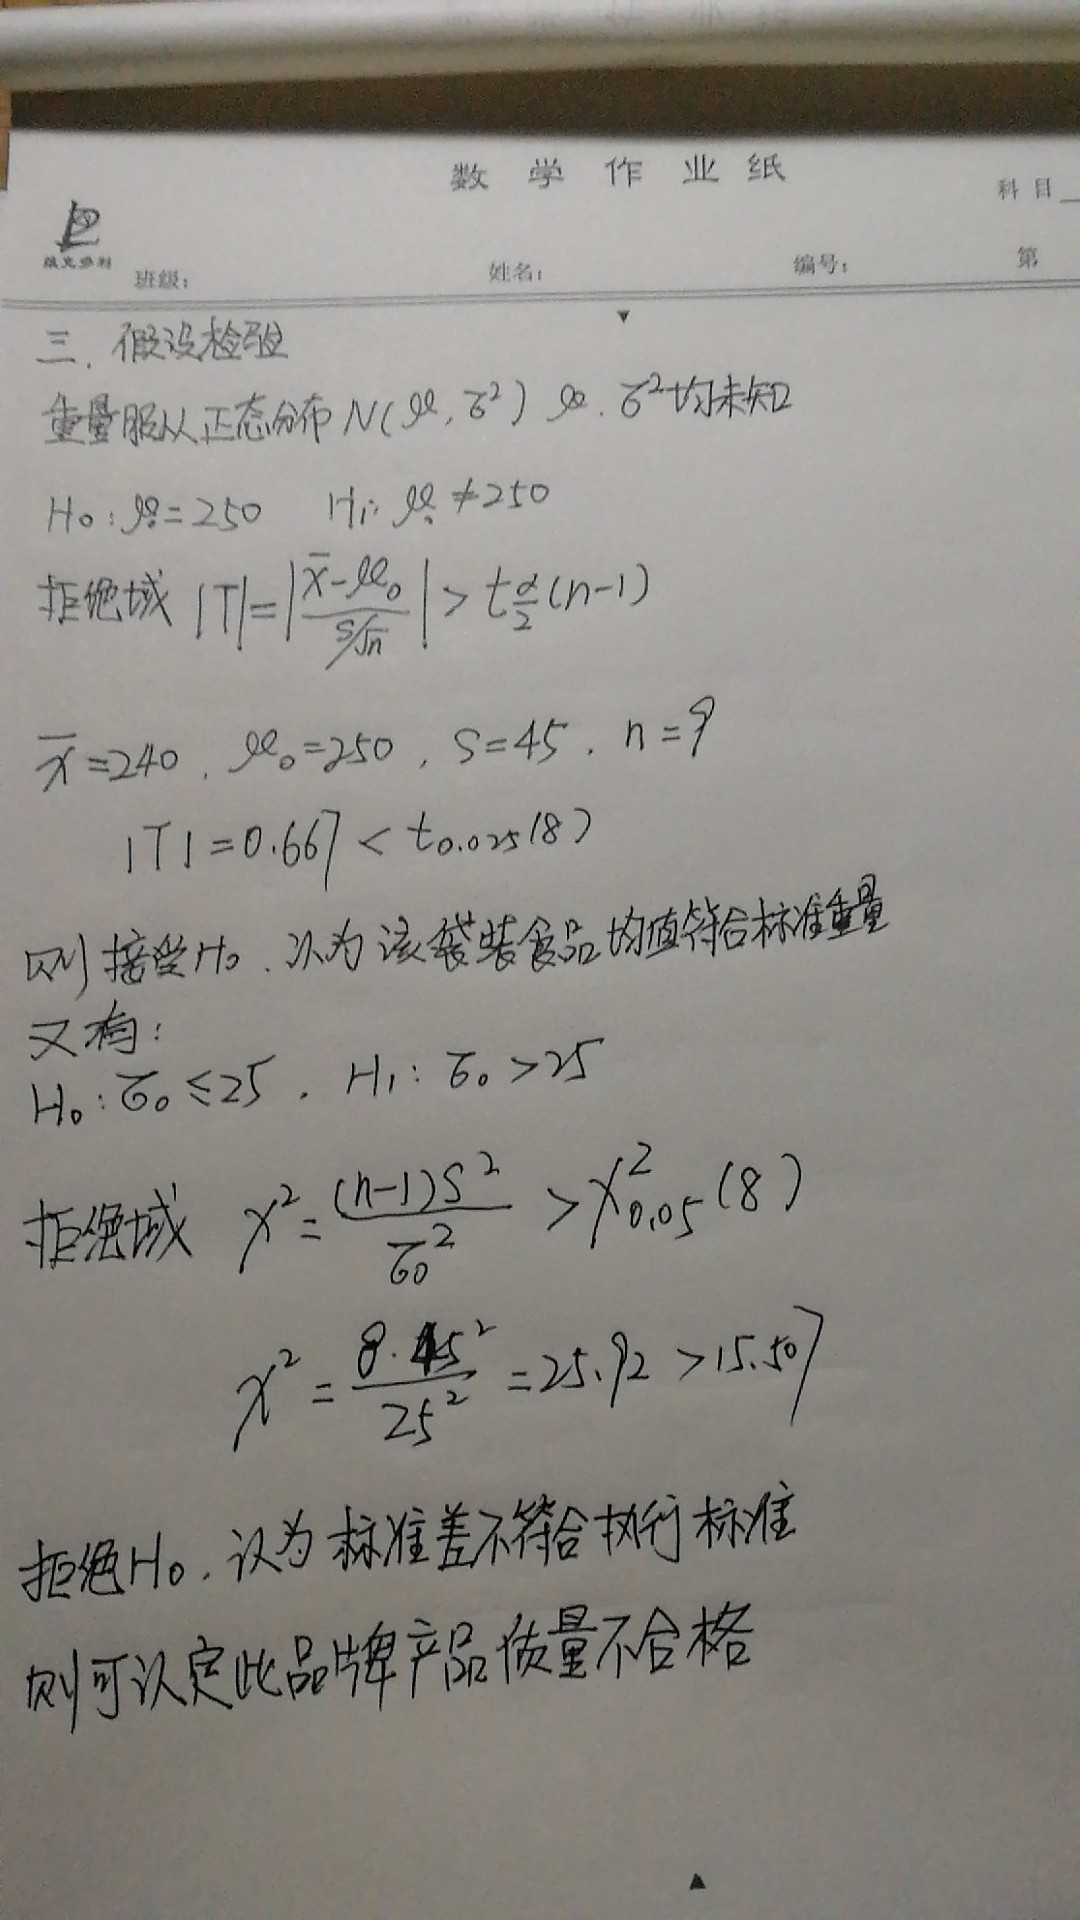 数学作业纸
科目
维克多利
班级：
姓名：
编号：
第
三、假设检验
重量服从正态分布 N(μ, σ²) μ、σ²均未知
H₀：μ₀=250 H₁：μ₀≠250
拒绝域 |T|=|(x̄-μ₀)/(S/√n)|>t_{α/2}(n-1)
x̄=240，μ₀=250，S=45，n=9
|T|=0.667<t₀.₀₂₅(8)
则接受H₀，认为该袋装食品均值符合标准重量
又有：
H₀：σ₀≤25，H₁：σ₀>25
拒绝域 χ²=(n-1)S²/σ₀²>χ²₀.₀₅(8)
χ²=8·45²/25²=25.92>15.507
拒绝H₀，认为标准差不符合执行标准
则可认定此品牌产品质量不合格